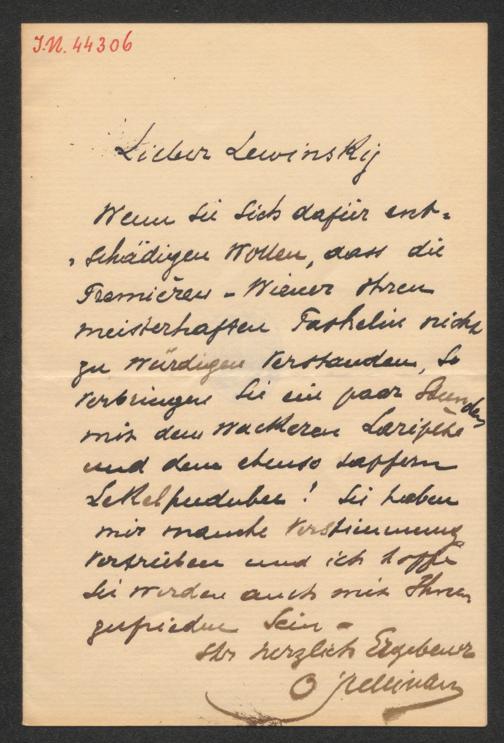 I.N. 44306
Lieber Lewinsky
Wenn Sie Sich dafür ent-
schädigen Wollen, dass die
Premièren-Wiener Ihren
meisterhaften nicht
zu Würdigen Verstanden, So
Verbringen Sie ein paar Stunden
mit dem Wackeren Laripète
und dem ebenso tapfern
! Sie haben
mir manche Verstimmung
Vertrieben und ich hoffe
Sie werden auch mit Ihnen
zufrieden Sein -
Ihr herzlich Ergebener